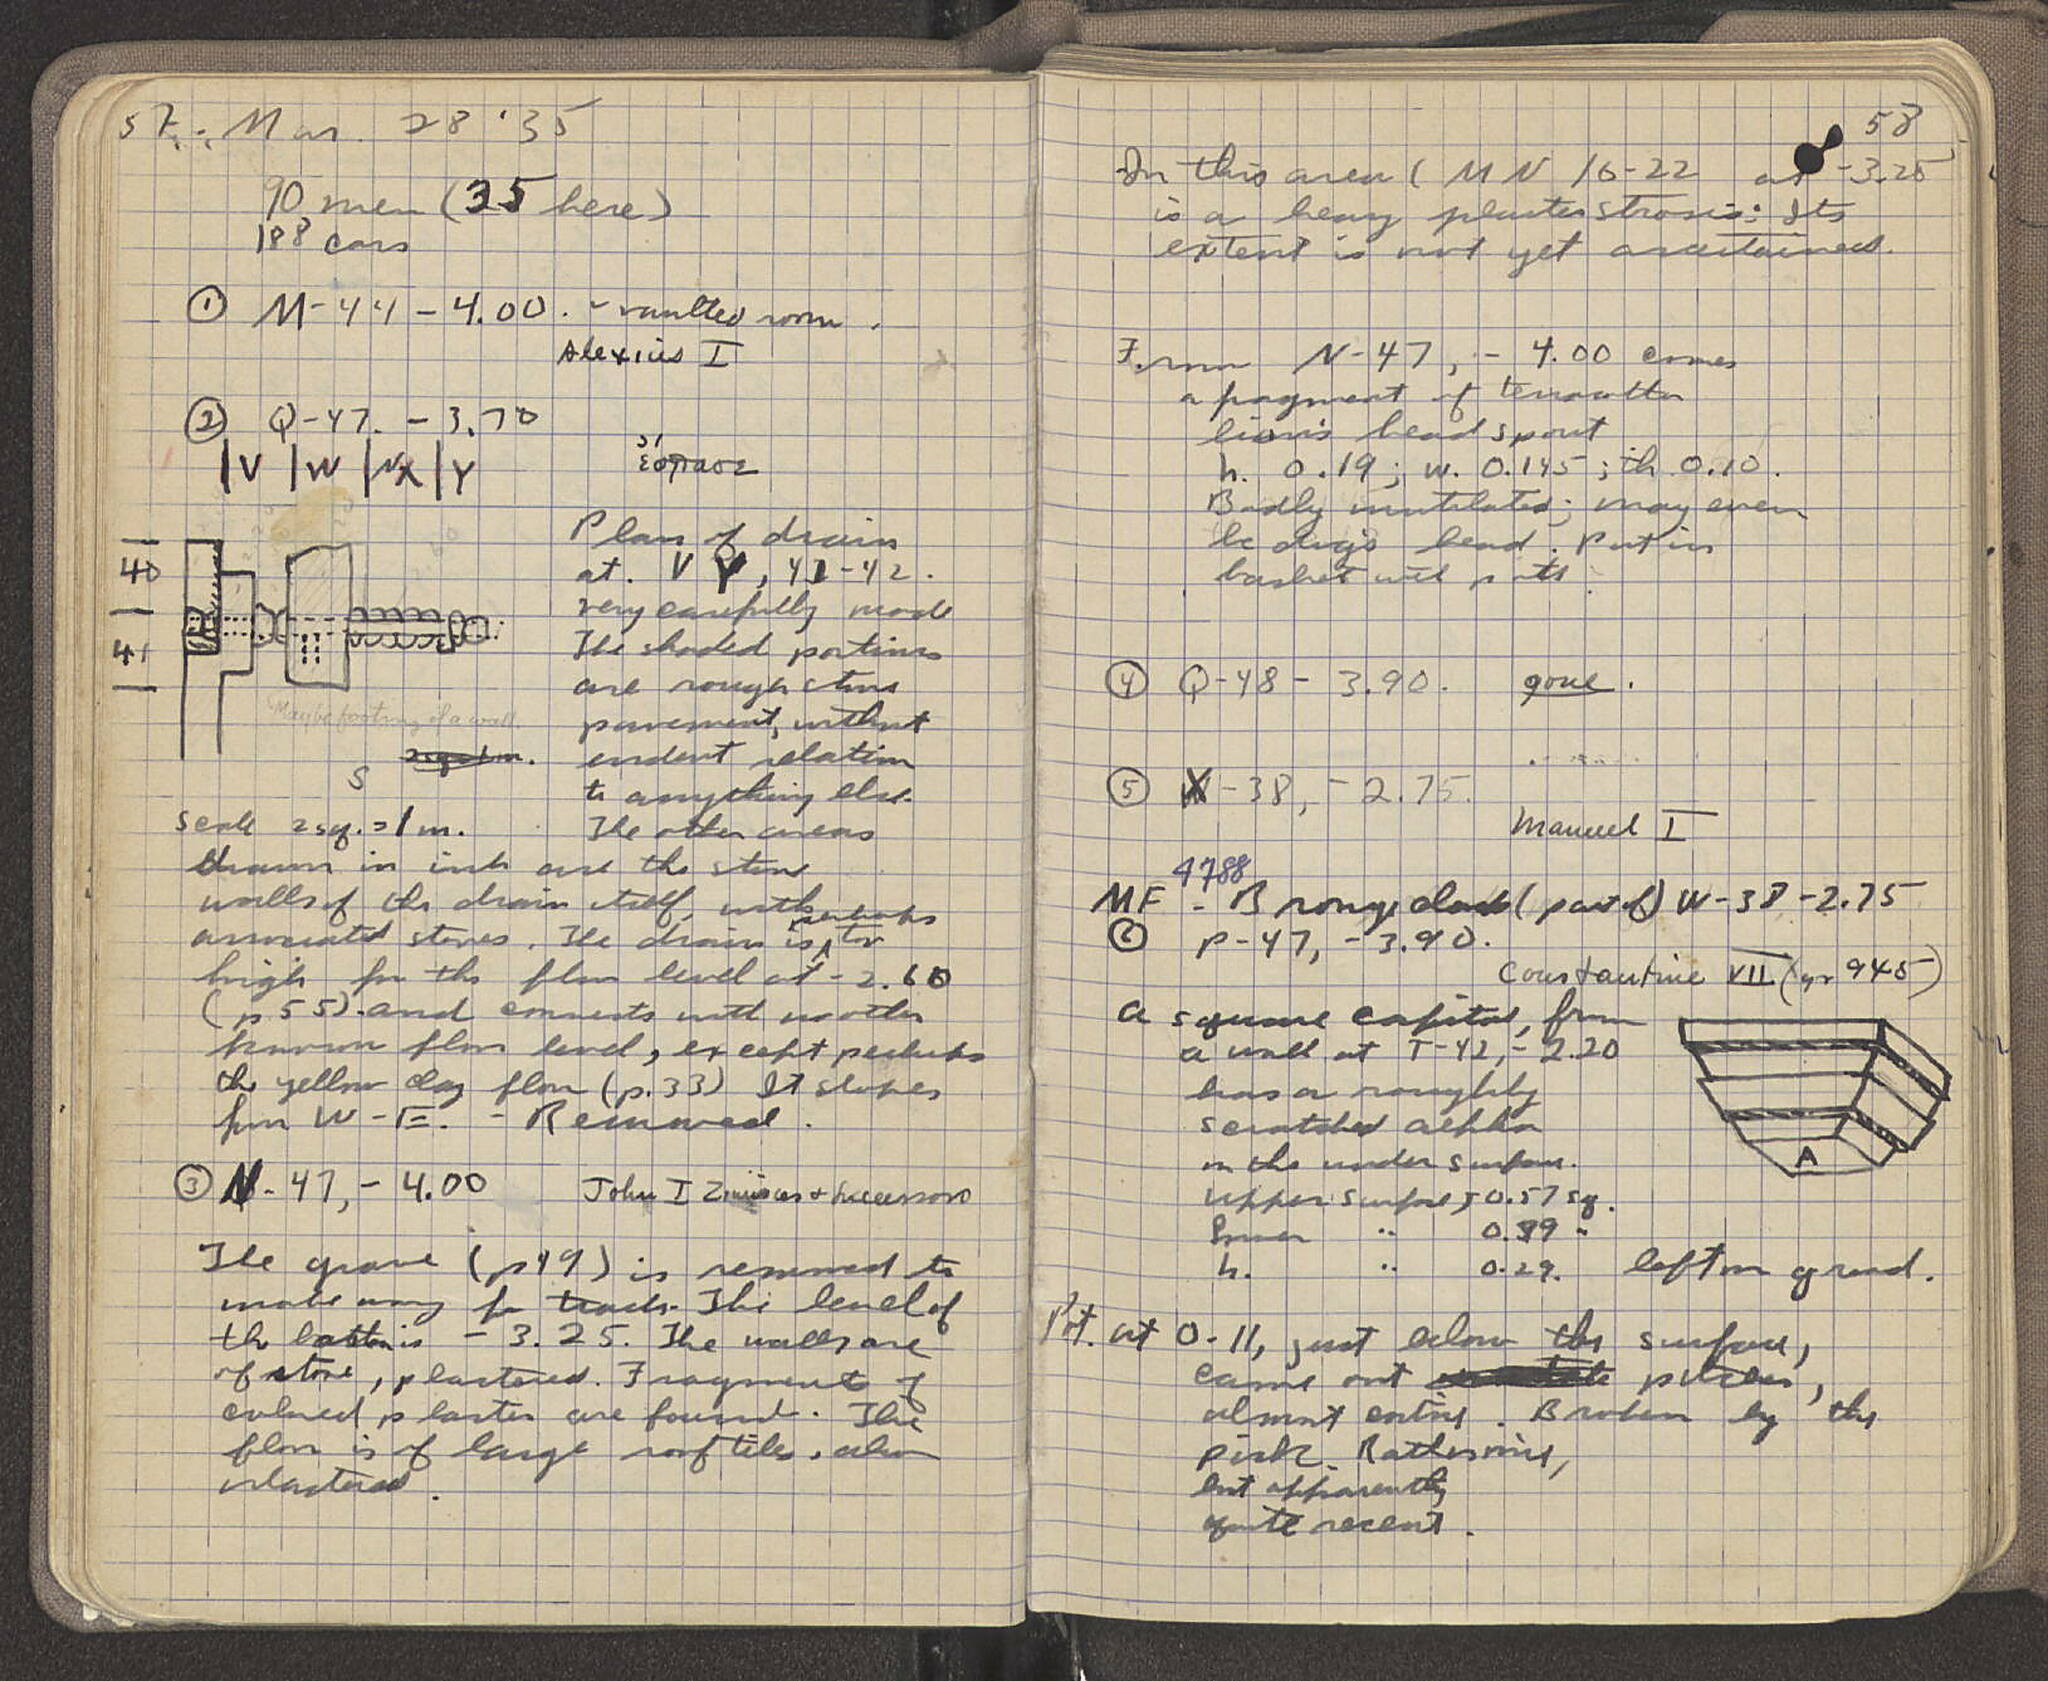 57. Mar. 28 '35
90 men (35 here)
188 cars
① M-44 - 4.00. - vaulted room.
Alexius I
② Q-47. - 3.70
|V |W |X |Y
40
41
Maybe footing of a wall.
S
2 sq = 1 m.
scale 2 sq. = 1 m.
Plan of drain
at. V Y, 41-42.
very carefully made
The shaded portions
are rough stone
pavement, without
evident relation
to anything else.
The other areas
drawn in ink are the stone
walls of the drain itself, with
associated stones. The drain is perhaps too
high for the floor level at -2.60
(p 55) and connects with no other
known floor level, except perhaps
the yellow clay floor (p.33) It slopes
from W-E. - Removed.
③ N-47, - 4.00 John I Zimisces + successors
The grave (p49) is removed to
make way for track. The level of
the bottom is - 3.25. The walls are
of stone, plastered. Fragments of
colored plaster are found. The
floor is of large roof tiles, also
plastered.
58
In this area (MN 16-22 at -3.25
is a heavy plaster strosis: Its
extent is not yet ascertained.
From N-47, - 4.00 comes
a fragment of terracotta
lion's head spout
h. 0.19; w. 0.145; th 0.10.
Badly mutilated; may even
be dog's head. Put in
basket with pots
④ Q-48 - 3.90. gone.
⑤ X-38, - 2.75.
Manuel I
4788
MF - Bronze (part of) W-38 -2.75
⑥ P-47, - 3.90.
Constantine VII (yr 945)
a square capital, from
a wall at T-42, - 2.20
has a roughly
scratched alpha
in the under surface.
A
upper surface, 0.57 sq.
lower " 0.39 "
h. " 0.29. left on ground.
Pot. at O-11, just below the surface,
came out pitcher,
almost entire. Broken by the
pick. Rather nice,
but apparently
quite recent.